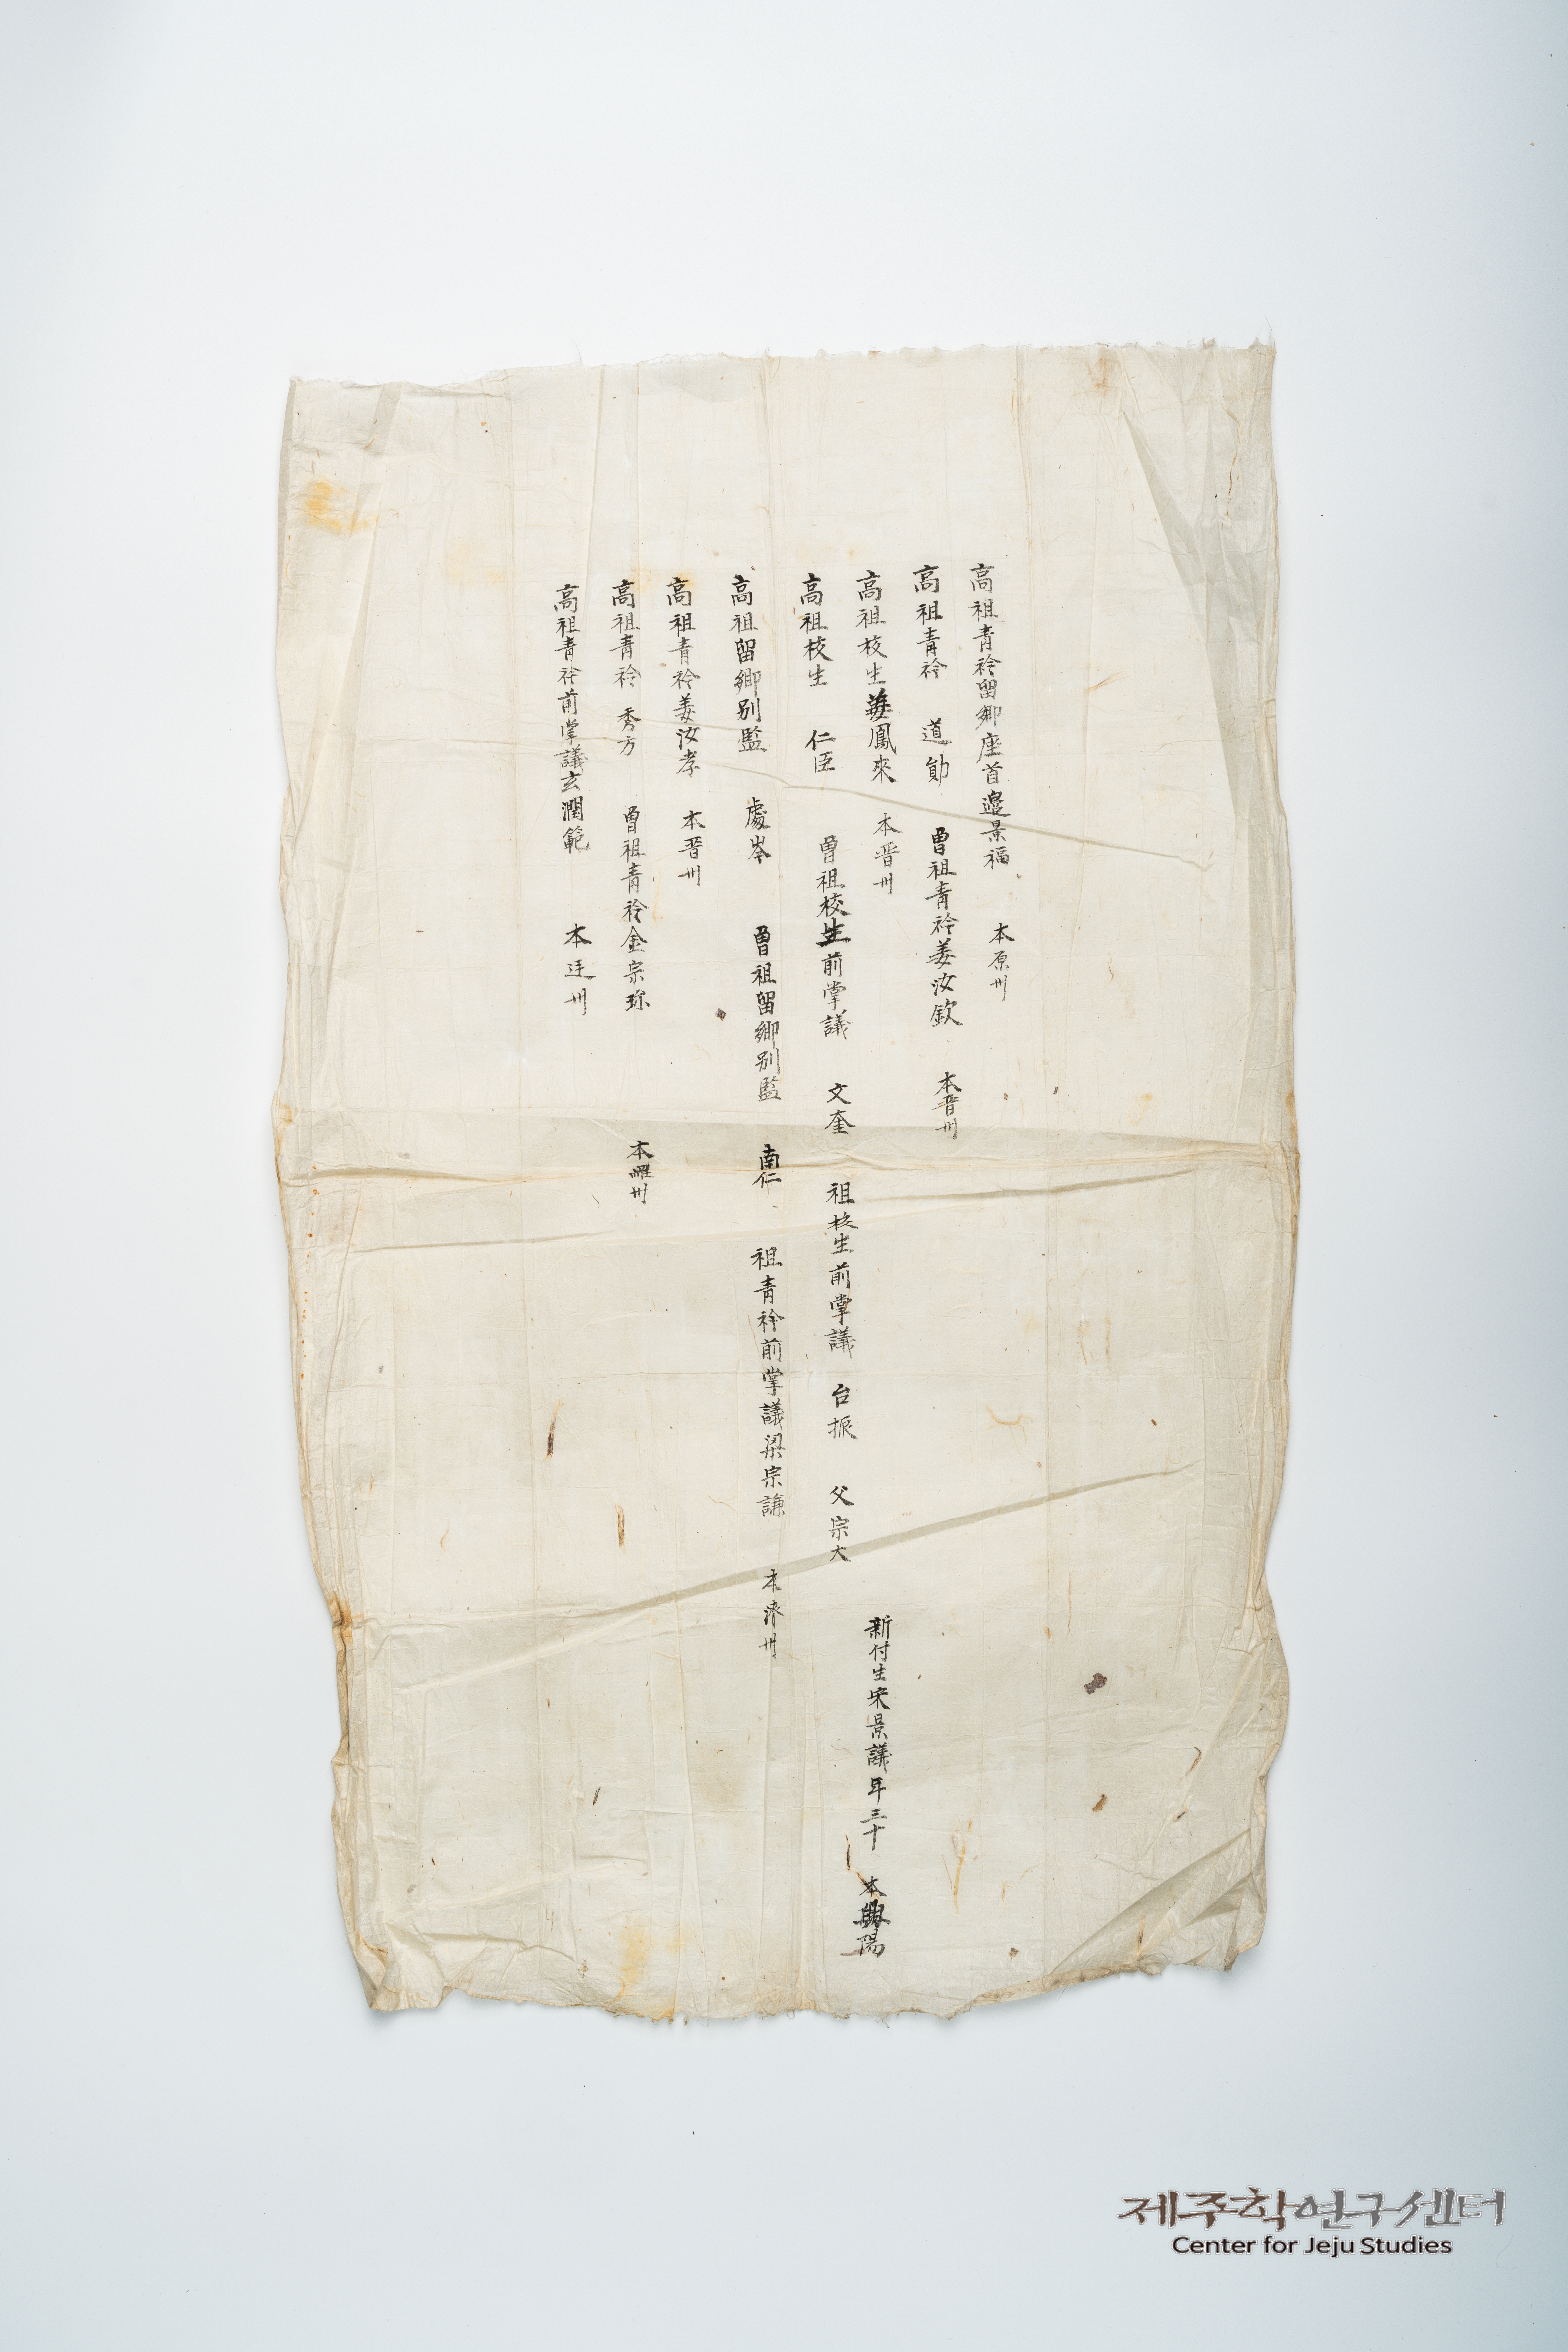 高祖青衿留鄕座首邉景福 本原州
高祖青衿 道勛 曾祖青衿姜汝欽 本晋州
高祖校生姜鳳來 本晋州
高祖校生 仁臣 曾祖校生前掌議 文奎 祖校生前掌議 台振 父宗大
新付生宋景議年三十 本興陽
高祖留鄕別監 處岑 曾祖留鄕別監 南仁 祖青衿前掌議梁宗謙 本濟州
高祖青衿姜汝孝 本晋州
高祖青衿 秀方 曾祖青衿金宗珎 本州
高祖青衿前掌議玄潤範 本州
제주학연구센터
Center for Jeju Studies